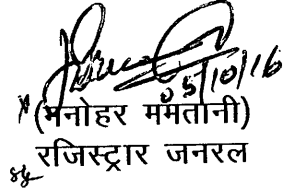 05/10/16
(मनोहर ममतानी)
रजिस्ट्रार जनरल